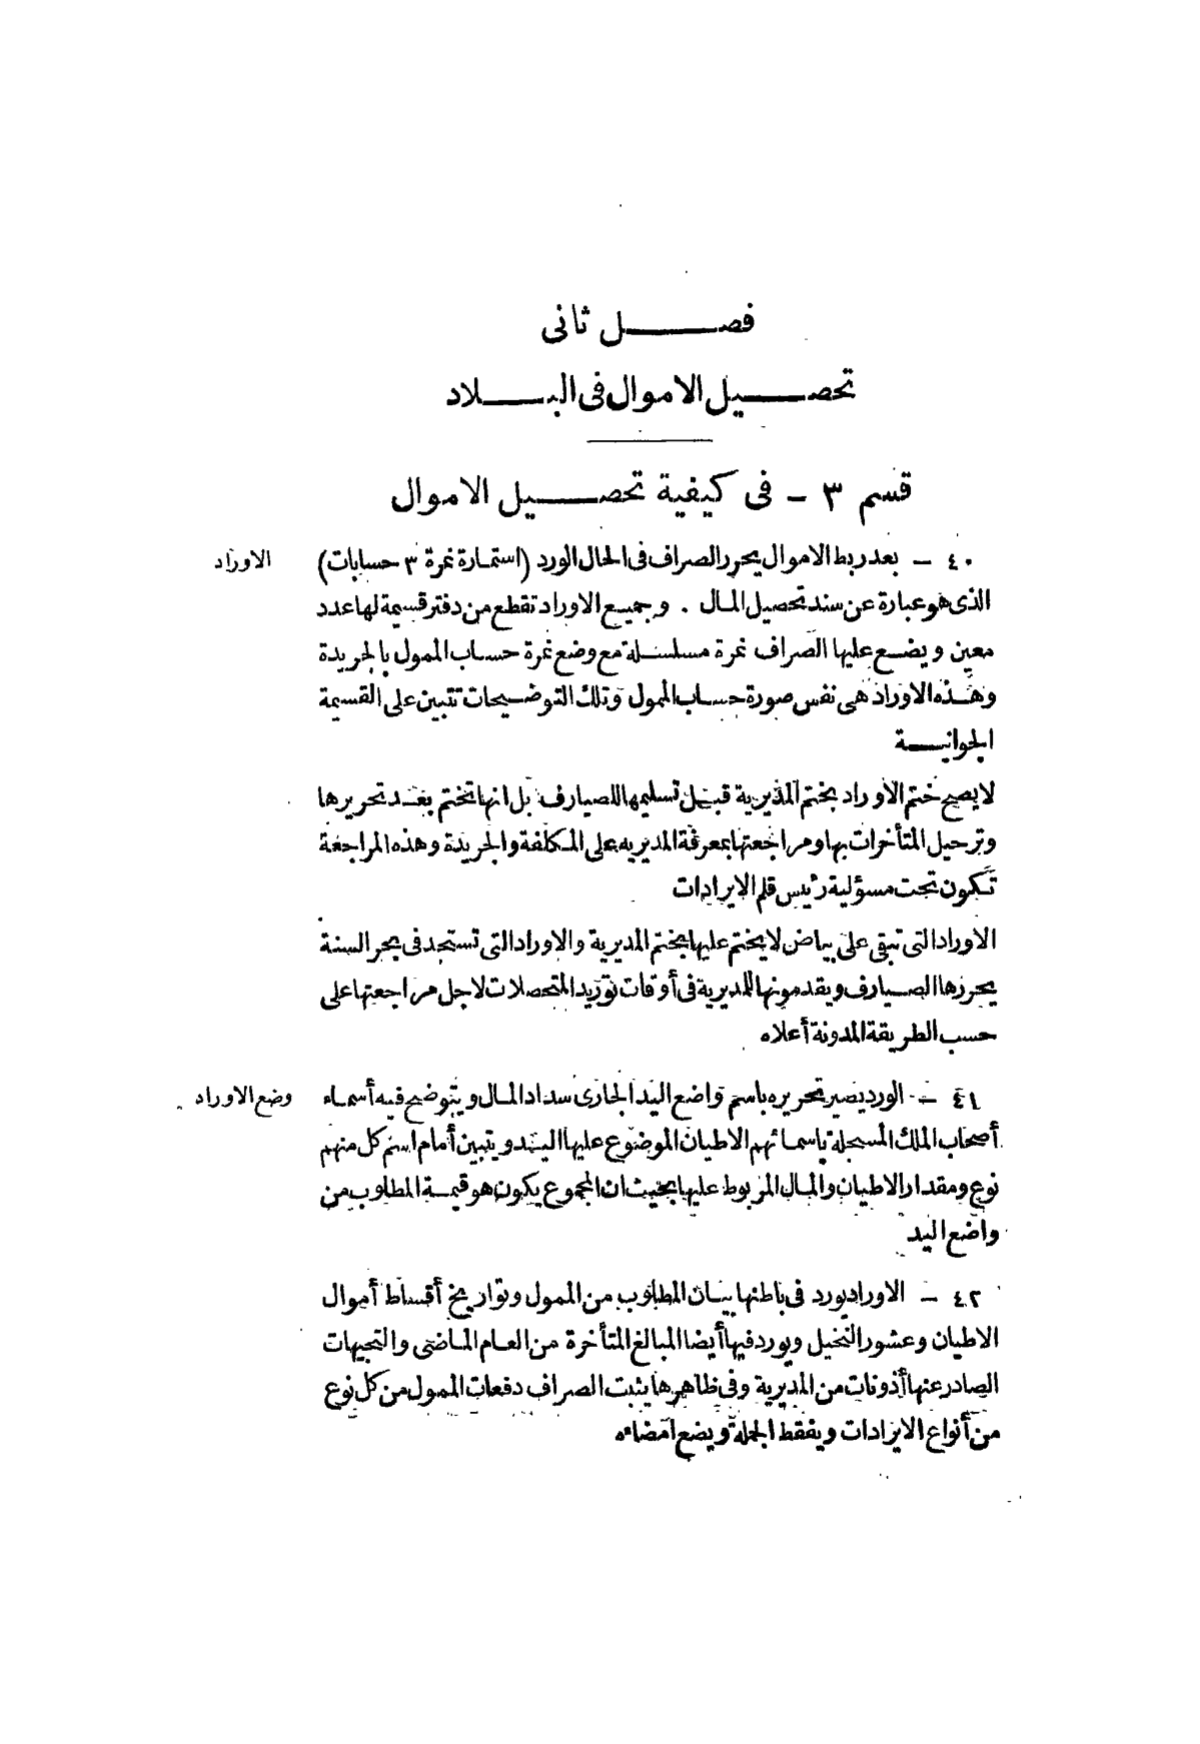 فصل ثانى
تحصيل الاموال فى البلاد
قسم ٣ - فى كيفية تحصيل الاموال
الاوراد
٤٠ - بعد ربط الاموال يحرر الصراف فى الحال الورد (استمارة نمرة ٣ حسابات)
الذى هو عبارة عن سند تحصيل المال . وجميع الاوراد تقطع من دفتر قسيمة لها عدد
معين ويضع عليها الصراف نمرة مسلسلة مع وضع نمرة حساب الممول بالجريدة
وهذه الاوراد هى نفس صورة حساب الممول وتلك التوضيحات تتبين على القسيمة
الجوانية
لا يصح ختم الاوراد بختم المديرية قبل تسليمها للصيارف بل انها تختم بعد تحريرها
وترحيل المتأخرات بها ومراجعتها بمعرفة المديريه على المكلفة والجريدة وهذه المراجعة
تكون تحت مسؤلية رئيس قلم الايرادات
الاوراد التى تبقى على بياض لا يختم عليها بختم المديرية والاوراد التى تستجد فى بحر السنة
يحررها الصيارف ويقدمونها للمديرية فى أوقات توريد المتحصلات لاجل مراجعتها على
حسب الطريقة المدونة أعلاه
وضع الاوراد
٤١ - الورد يصير تحريره باسم واضع اليد الجارى سداد المال ويتوضح فيه أسماء
أصحاب الملك المسجلة باسمائهم الاطيان الموضوع عليها اليد ويتبين أمام اسم كل منهم
نوع ومقدار الاطيان والمال المربوط عليها بحيث ان المجموع يكون هو قيمة المطلوب من
واضع اليد
٤٢ - الاوراد يورد فى باطنها بيان المطلوب من الممول وتواريخ أقساط أموال
الاطيان وعشور النخيل ويورد فيها أيضا المبالغ المتأخرة من العام الماضى والتجيهات
الصادر عنها أذونات من المديرية وفى ظاهرها يثبت الصراف دفعات الممول من كل نوع
من أنواع الايرادات ويفقط الجملة ويضع امضاءه